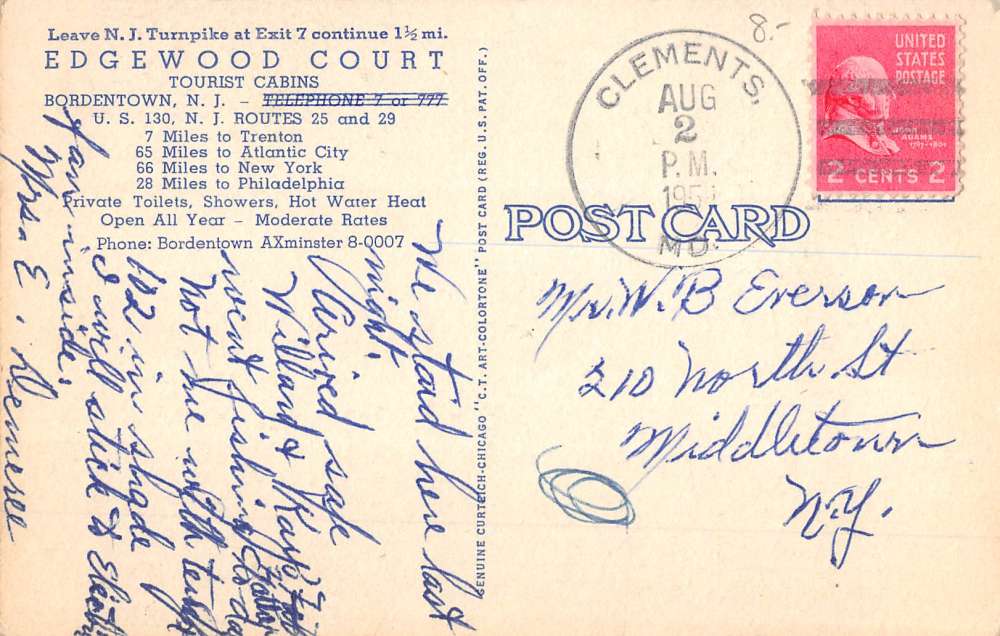 Leave N. J. Turnpike at Exit 7 continue 1½ mi.
EDGEWOOD COURT
TOURIST CABINS
BORDENTOWN, N. J. – TELEPHONE 7 or 777
U. S. 130, N. J. ROUTES 25 and 29
7 Miles to Trenton
65 Miles to Atlantic City
66 Miles to New York
28 Miles to Philadelphia
Private Toilets, Showers, Hot Water Heat
Open All Year – Moderate Rates
Phone: Bordentown AXminster 8-0007
We staid here last
night.
Arived safe
Willard &
went fishing to day
Not me with temp
102 in shade
I will stick to Electric
fan inside.
Mrs E. Demeree
GENUINE CURTEICH-CHICAGO "C.T. ART-COLORTONE" POST CARD (REG. U.S. PAT. OFF.)
8.-
CLEMENTS,
AUG
2
P.M.
MD.
UNITED
STATES
POSTAGE
JOHN
ADAMS
2 CENTS 2
POST CARD
Mr. W. B Everson
210 North. St
Middletown
N.Y.